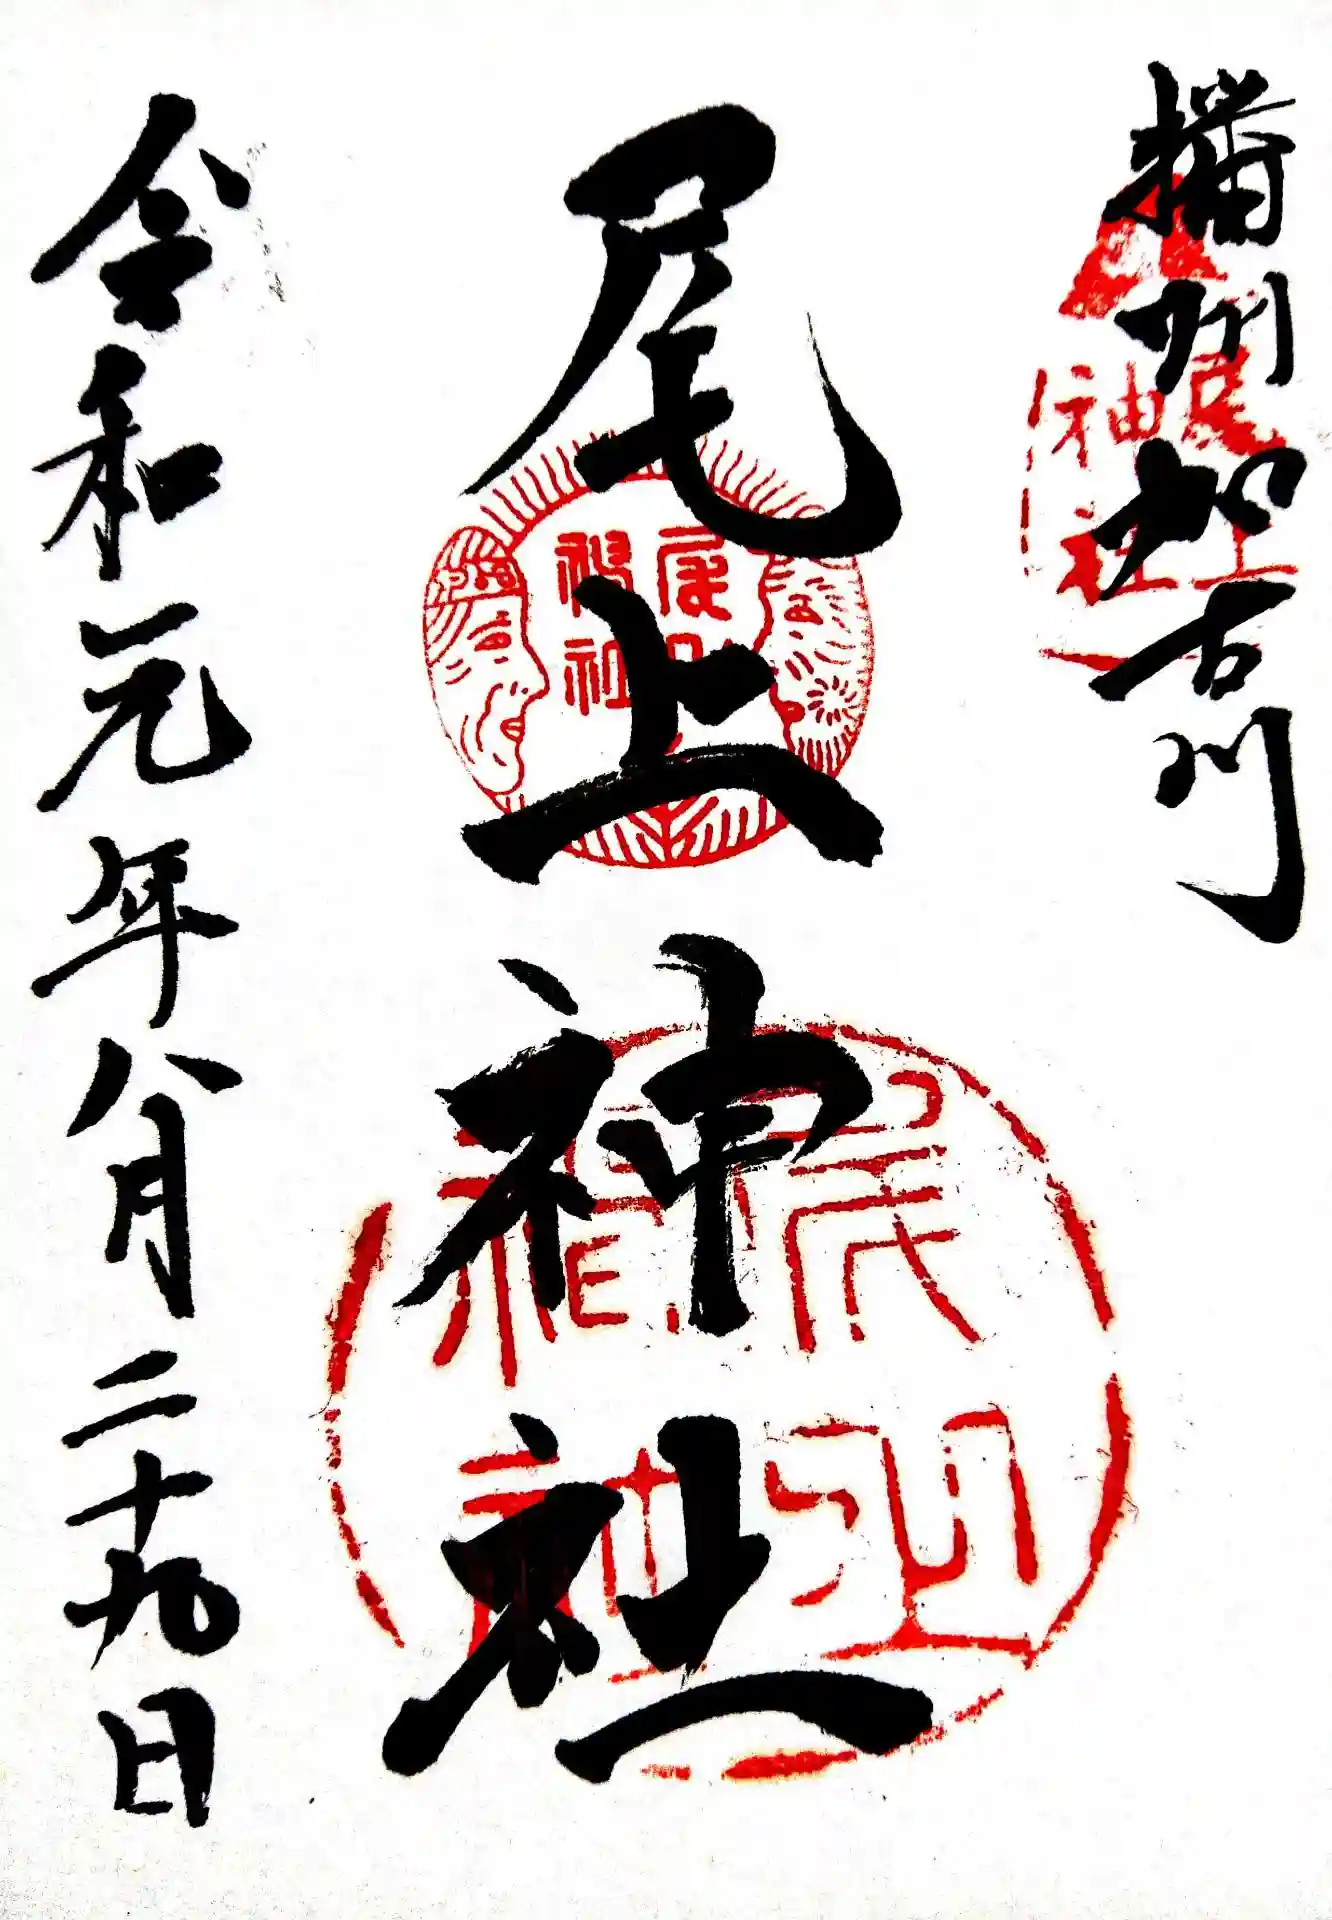 播州加古川
尾上神社
令和元年八月二十九日
尾上
神社
尾上
神社